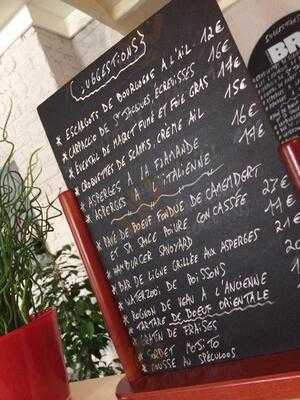 SUGGESTIONS
* ESCARGOTS DE BOURGOGNE A L'AIL 12€
* CARPACCIO DE ST JACQUES, ÉCREVISSES 16€
* ÉVENTAIL DE MAGRET FUMÉ ET FOIE GRAS 17€
* CROQUETTES DE SCAMPIS, CRÈME AIL 15€
* ASPERGES A LA FLAMANDE 16€
* ASPERGES A L'ITALIENNE 17€
* PAVÉ DE BOEUF FONDUE DE CAMEMBERT
ET SA SAUCE POIVRE CON CASSÉE 27€
* HAMBURGER SAVOYARD 17€
* BAR DE LIGNE GRILLÉE AUX ASPERGES
* WATERZOOI DE POISSONS
* ROGNON DE VEAU A L'ANCIENNE
* TARTARE DE BOEUF ORIENTALE
GRATIN DE FRAISES
* SORBET MOJITO
* MOUSSE AU SPÉCULOOS